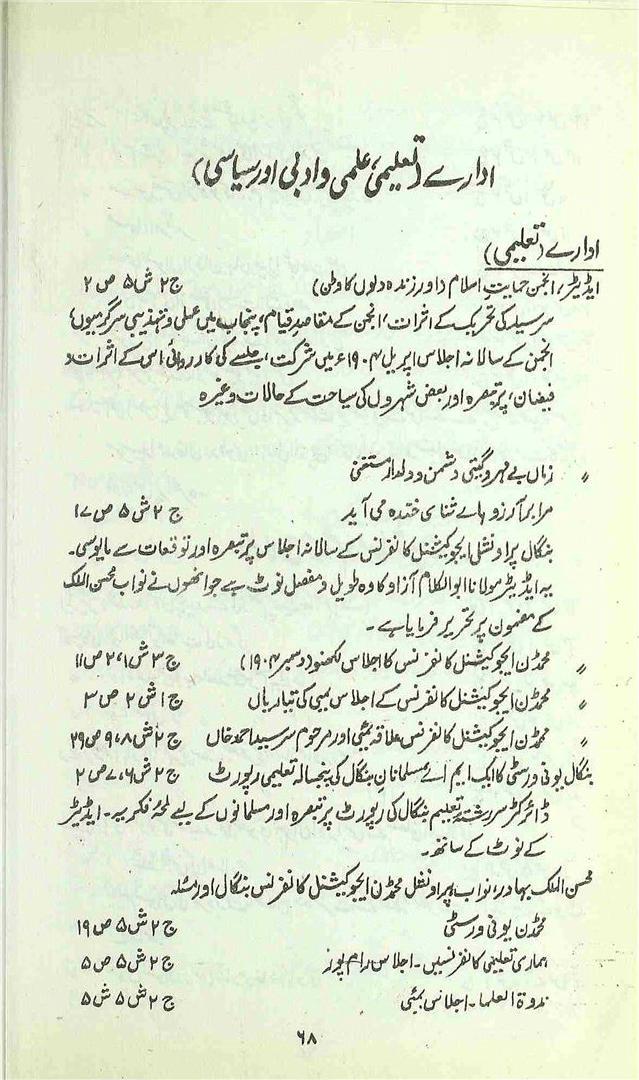 ادارے (تعلیمی، علمی و ادبی اور سیاسی)
ادارے (تعلیمی)
ایڈیٹر، انجمن حمایتِ اسلام (اور زندہ دلوں کا وطن) ج ۲ ش ۵ ص ۲
سرسید کی تحریک کے اثرات، انجمن کے مقاصدِ قیام، پنجاب میں عملی و تہذیبی سرگرمیوں،
انجمن کے سالانہ اجلاس اپریل ۱۹۰۴ء میں شرکت، جلسے کی کارروائی اس کے اثرات و
فیضان، پر تبصرہ اور بعض شہروں کی سیاحت کے حالات وغیرہ
〃 زماں بے مہر و گیتی دشمن و دلدار مستغنی
مرا بر آرزو ہاے ثنای خندہ می آید ج ۲ ش ۵ ص ۱۷
بنگال پراونشل ایجوکیشنل کانفرنس کے سالانہ اجلاس پر تبصرہ اور توقعات سے مایوسی۔
یہ ایڈیٹر مولانا ابوالکلام آزاد کا وہ طویل و مفصل نوٹ ہے جو انھوں نے نواب محسن الملک
کے مضمون پر تحریر فرمایا ہے۔
〃 محمڈن ایجوکیشنل کانفرنس کا اجلاس لکھنؤ (دسمبر ۱۹۰۴) ج ۳ ش ۱،۲ ص ۱۱
〃 محمڈن ایجوکیشنل کانفرنس کے اجلاس بمبئی کی تیاریاں ج ۱ ش ۲ ص ۳
〃 محمڈن ایجوکیشنل کانفرنس علاقہ بمبئی اور مرحوم سرسید احمد خاں ج ۲ ش ۸، ۹ ص ۲۹
بنگال یونی ورسٹی کا ایک ایم اے، مسلمانانِ بنگال کی پنجسالہ تعلیمی رپورٹ ج ۲ ش ۶، ۷ ص ۲
ڈائرکٹر سررشتۂ تعلیم بنگال کی رپورٹ پر تبصرہ اور مسلمانوں کے لیے لمحۂ فکریہ۔ ایڈیٹر
کے نوٹ کے ساتھ۔
محسن الملک بہادر، نواب، پراونشل محمڈن ایجوکیشنل کانفرنس بنگال اور مسئلہ
محمڈن یونی ورسٹی ج ۲ ش ۵ ص ۱۹
ہماری تعلیمی کانفرنسیں۔ اجلاس رام پور ج ۲ ش ۵ ص ۵
ندوۃ العلما۔ اجلاس بمبئی ج ۲ ش ۵ ش ۵
۶۸